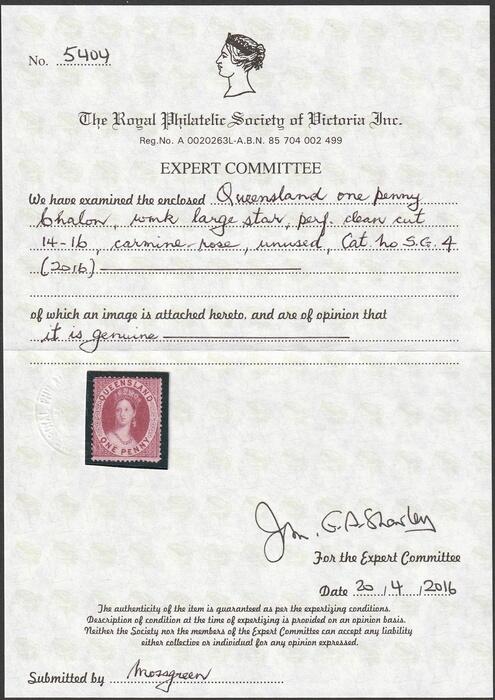 No. 5404
The Royal Philatelic Society of Victoria Inc.
Reg.No. A 0020263L-A.B.N. 85 704 002 499
EXPERT COMMITTEE
We have examined the enclosed Queensland one penny
Chalon, wmk large star, perf. clean cut
14-16, carmine-rose, unused, Cat. no S.G. 4
(2016)
of which an image is attached hereto, and are of opinion that
it is genuine
QUEENSLAND
ONE PENNY
For the Expert Committee
Date 20/4/2016
The authenticity of the item is guaranteed as per the expertizing conditions.
Description of condition at the time of expertizing is provided on an opinion basis.
Neither the Society nor the members of the Expert Committee can accept any liability
either collective or individual for any opinion expressed.
Submitted by Mossgreen